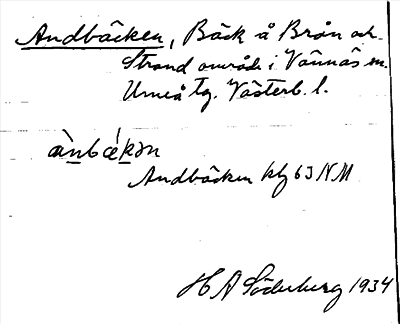 Andbäcken, Bäck å Brån och
Strand område i Vännäs sn.
Umeå tg. Västerb. l.
ànbǽkən
Andbäcken kbg 63 NM
H A Söderberg 1934